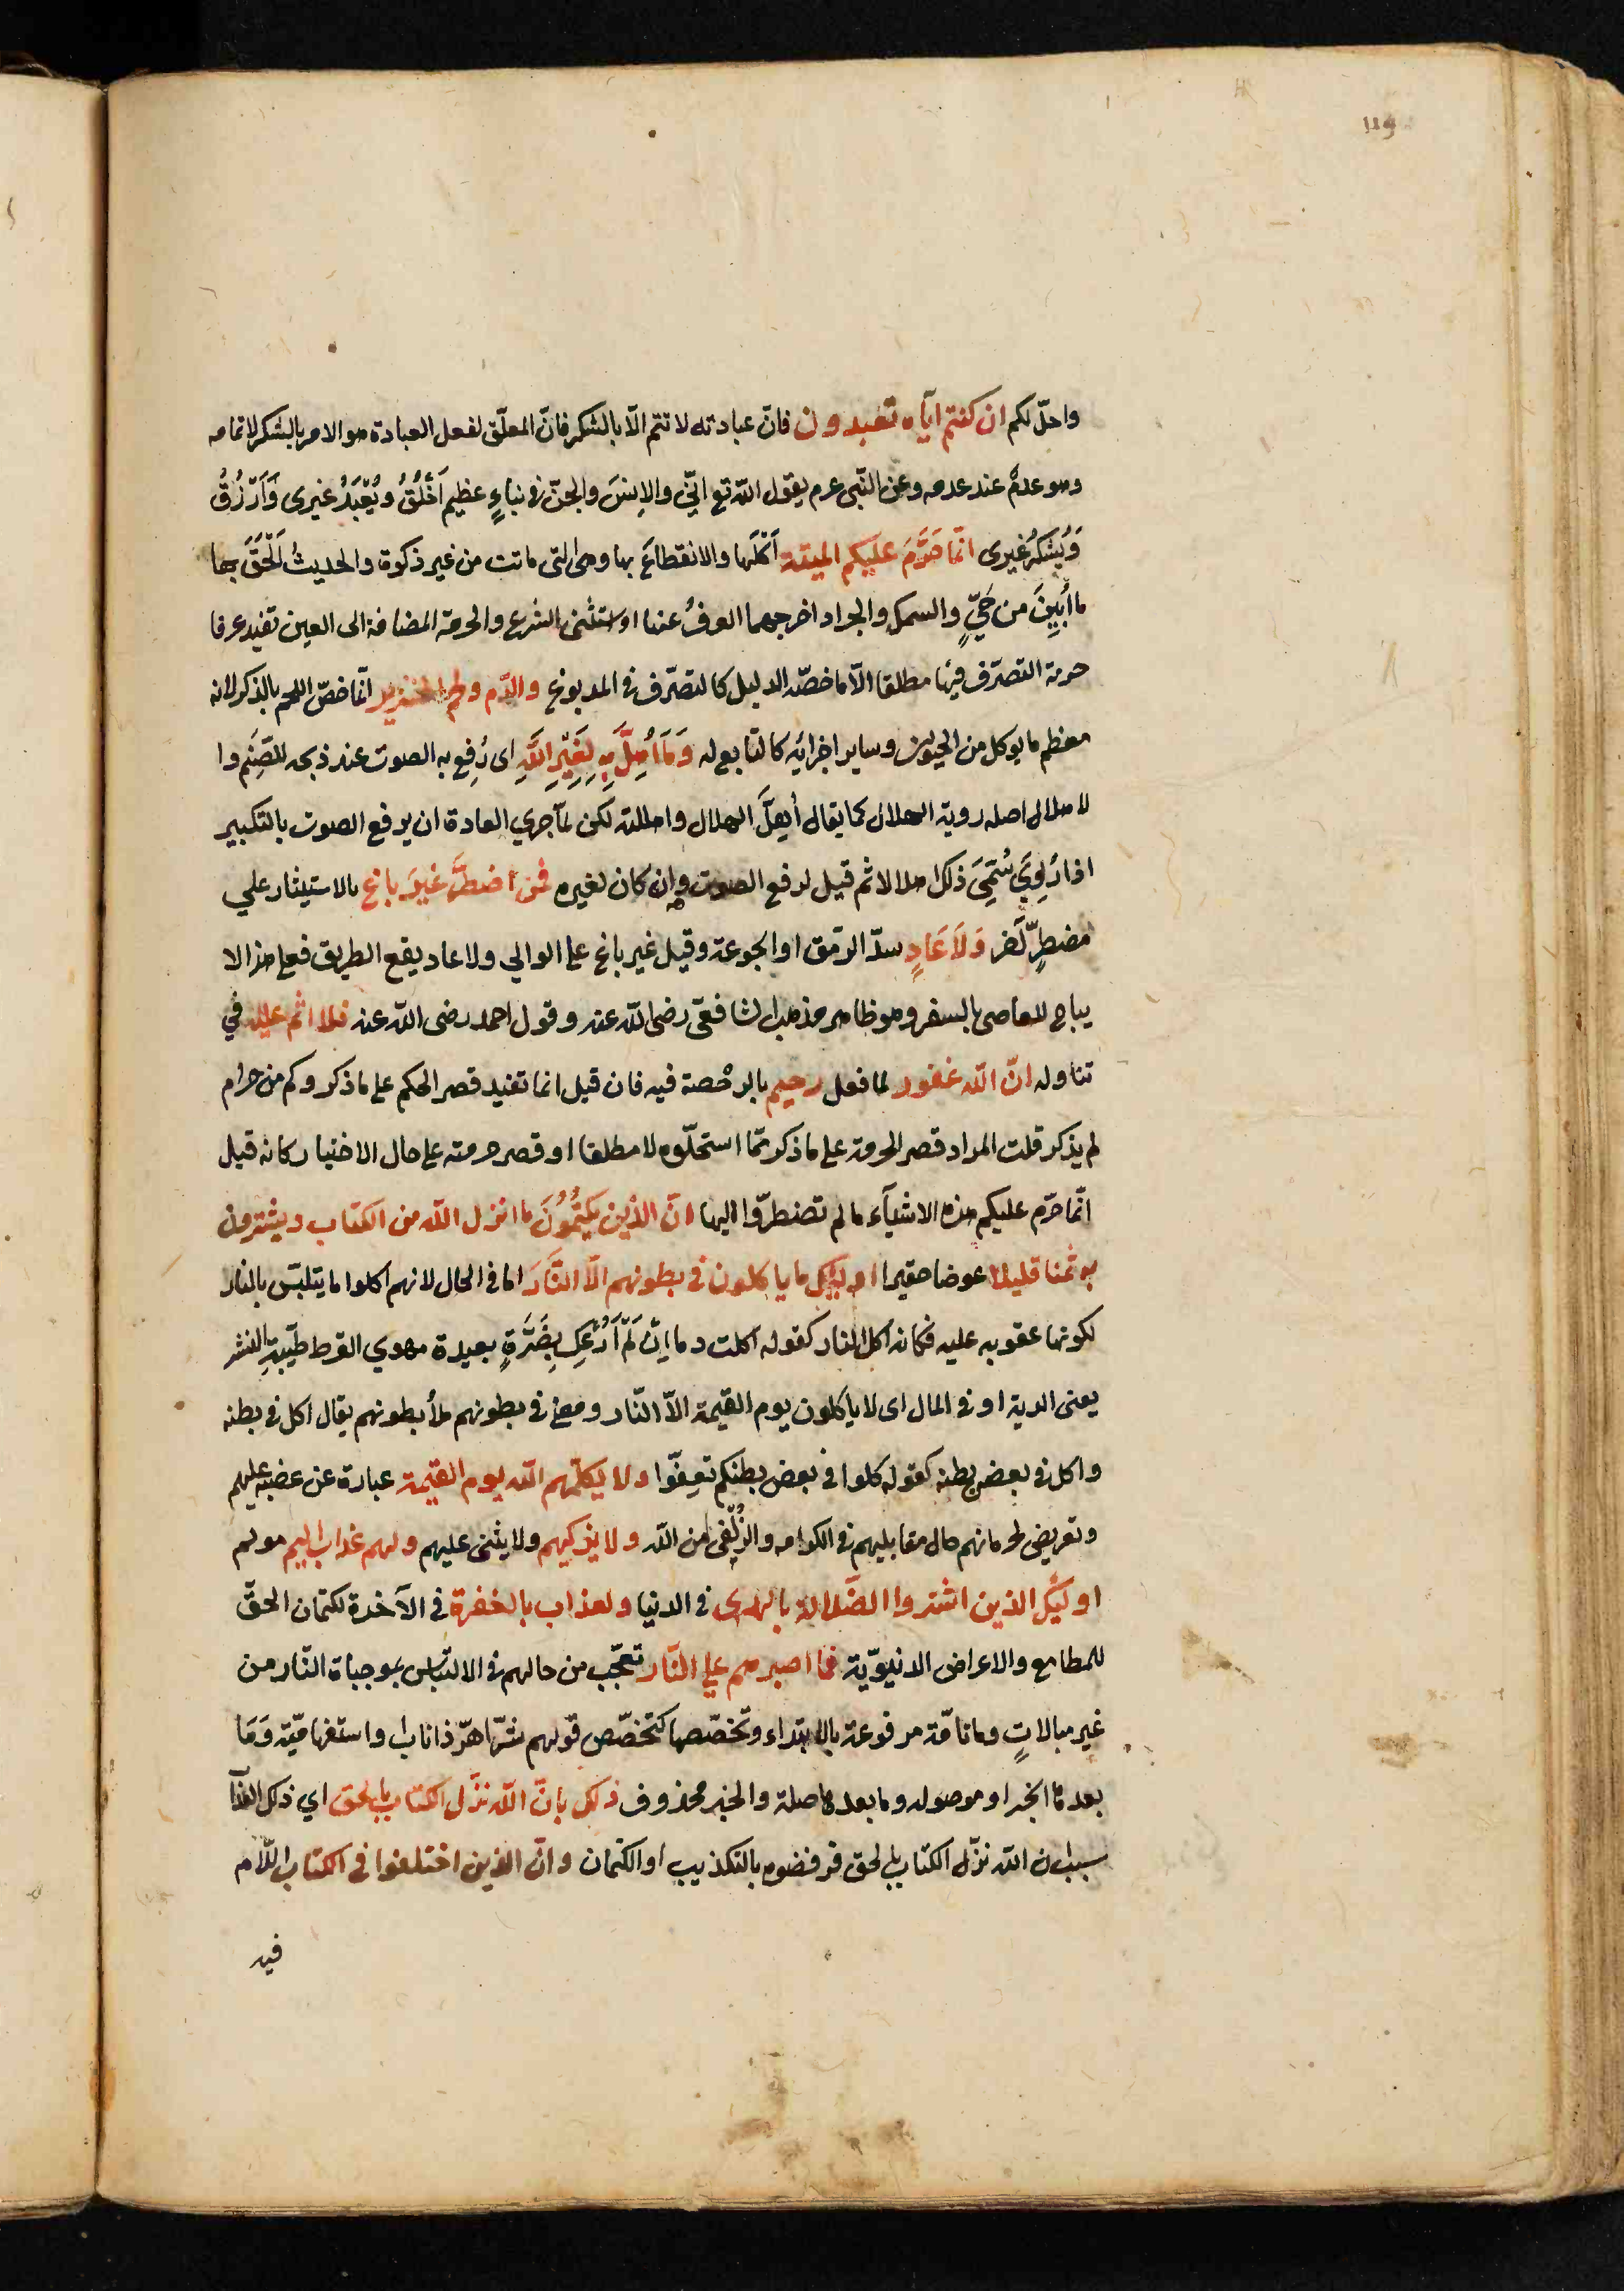 119
واحلّ لكم ان كنتم ايّاه تعبدون فانّ عبادته لا تتم الّا بالشكر فانّ المعلّق لفعل العبادة هو الامر بالشكر لاتمامه
وهو عدمٌ عند عدمه وعن النّبى عم يقول اللّه تع انّى والانسَ والجنّ فى نباءٍ عظيم أَخْلُقُ ويُعْبَدُ غيرى وَأَرْزُقُ
وَيُشكَرُ غيرى انّما حَرَّمَ عليكم الميتة أَكْلَها والانقطاعَ بها وهى التى ماتت من غير ذكوة والحديثُ اَلْحَقَ بها
ما أُبِينَ من حَىٍّ والسمك والجراد اخرجهما العرفُ عنها او استثنى الشرع والحرمة المضافة الى العين تفيد عرفا
حرمة التصرّف فيها مطلقا الّا ما خصّه الدليل كالتصرّف فى المدبوغ والدّم ولحم الخنزير انّما خصّ اللحم بالذكر لانه
معظم ما يوكل من الحيوان وساير اجزائه كالتّابع له وَمَا أُهِلَّ بِهِ لِغَيْرِ اللَّهِ اى رُفِع به الصوت عند ذبحه للصَّنَم وا
لاهلال اصله روية الهلال كما يقال أُهِلَّ الهلال واهللته لكن لمّا جرى العادة ان يرفع الصوت بالتكبير
اذا رُوِىَ سُمِّىَ ذلك اهلالا ثم قيل لرفع الصوت وان كان لغيره فمن اضطرَّ غيرَ باغ بالاستيثار على
مضطرٍّ آخر وَلَا عَادٍ سدّ الرّمق او الجوعة وقيل غير باغ على الوالي ولا عاد يقع الطريق فعلى هذا لا
يباح للعاصى بالسفر وهو ظاهر مذهب الشافعى رضى اللّه عنه وقول احمد رضى اللّه عنه فلا اثم عليه في
تناوله انّ اللّه غفور لما فعل رحيم بالرخصة فيه فان قيل انما تفيد قصر الحكم على ما ذكر وكم من حرام
لم يذكر قلت المراد قصر الحرمة على ما ذكر ممّا استحلّوه لا مطلقا او قصر حرمته على حال الاختيار كانه قيل
انّما حرّم عليكم هذه الاشيآء ما لم تضطرّوا اليها انّ الذين يَكْتُمُونَ ما انزل اللّه من الكتاب ويشترون
به ثمنا قليلا عوضا حقيرا اوليك ما ياكلون فى بطونهم الّا النَّارَ اما فى الحال لانهم اكلوا ما يتلبّس بالنار
لكونها عقوبه عليه فكانه اكل النار كقوله اكلت دما إن لَمْ أَرُعْكِ بِضَرَّةٍ بعيدة مهوي القرط طيّبةِ النشر
يعنى الدية او فى المال اى لا ياكلون يوم القيمة الاّ النّار ومعنى فى بطونهم ملأ بطونهم يقال اكل فى بطنه
واكل فى بعض بطنه كقوله كلوا فى بعض بطنكم تعفّوا ولا يكلّمهم اللّه يوم القيمة عبارة عن غضبه عليهم
وتعريض لحرمانهم حال مقابليهم فى الكرامه والزُّلْفَى من اللّه ولا يزكيهم ولا يثنى عليهم ولهم عذاب اليم مولم
اوليك الذين اشتروا الضّلالة بالهدى فى الدنيا والعذاب بالمغفرة فى الآخرة لكتمان الحقّ
للمطامع والاعراض الدنيويّة فما اصبرهم على النّار تعجّب من حالهم فى الالتباس بموجبات النّار من
غير مبالاتٍ وما تامّة مرفوعة بالابتداء وتخصّصها كتخصّص قولهم شرّ اهرّ ذا ناب او استفهاميّة وَمَا
بعدها الخبر او موصوله وما بعدها صلة والخبر محذوف ذلك بانّ اللّه نزّل الكتاب بالحق اي ذلك العذآ
بسبب ان اللّه نزّل الكتاب بالحق فرفضوه بالتكذيب او الكتمان وانّ الذين اختلفوا فى الكتاب اللّام
فيه